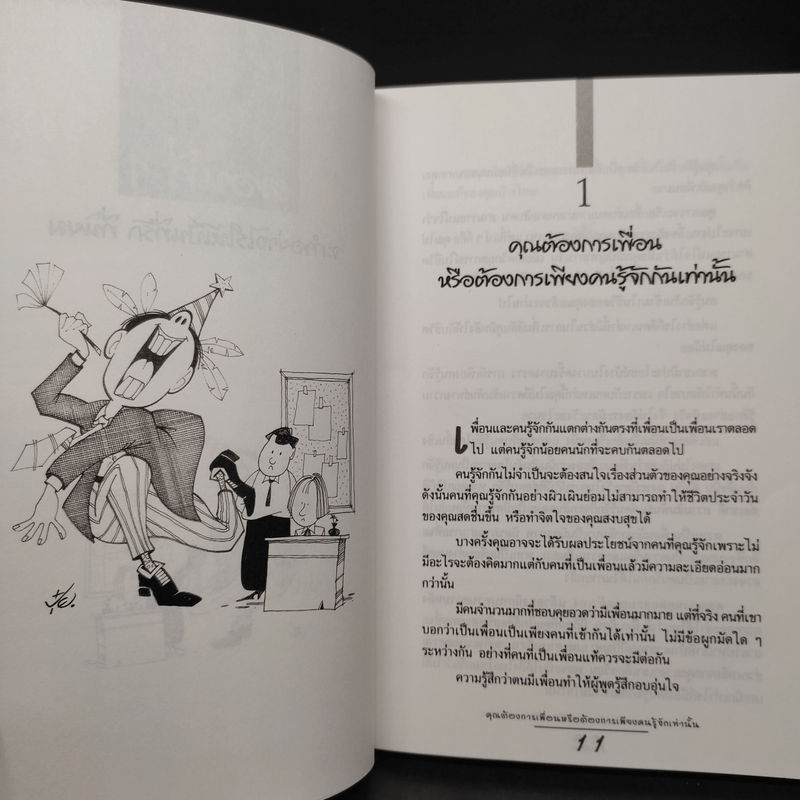 1
คุณต้องการเพื่อน
หรือต้องการเพียงคนรู้จักกันเท่านั้น
เพื่อนและคนรู้จักกันแตกต่างกันตรงที่เพื่อนเป็นเพื่อนเราตลอด
ไป แต่คนรู้จักน้อยคนนักที่จะคบกันตลอดไป
คนรู้จักกันไม่จำเป็นจะต้องสนใจเรื่องส่วนตัวของคุณอย่างจริงจัง
ดังนั้นคนที่คุณรู้จักกันอย่างผิวเผินย่อมไม่สามารถทำให้ชีวิตประจำวัน
ของคุณสดชื่นขึ้น หรือทำจิตใจของคุณสงบสุขได้
บางครั้งคุณอาจจะได้รับผลประโยชน์จากคนที่คุณรู้จักเพราะไม่
มีอะไรจะต้องคิดมากแต่กับคนที่เป็นเพื่อนแล้วมีความละเอียดอ่อนมาก
กว่านั้น
มีคนจำนวนมากที่ชอบคุยอวดว่ามีเพื่อนมากมาย แต่ที่จริง คนที่เขา
บอกว่าเป็นเพื่อนเป็นเพียงคนที่เข้ากันได้เท่านั้น ไม่มีข้อผูกมัดใด ๆ
ระหว่างกัน อย่างที่คนที่เป็นเพื่อนแท้ควรจะมีต่อกัน
ความรู้สึกว่าตนมีเพื่อนทำให้ผู้พูดรู้สึกอบอุ่นใจ
คุณต้องการเพื่อนหรือต้องการเพียงคนรู้จักเท่านั้น
11